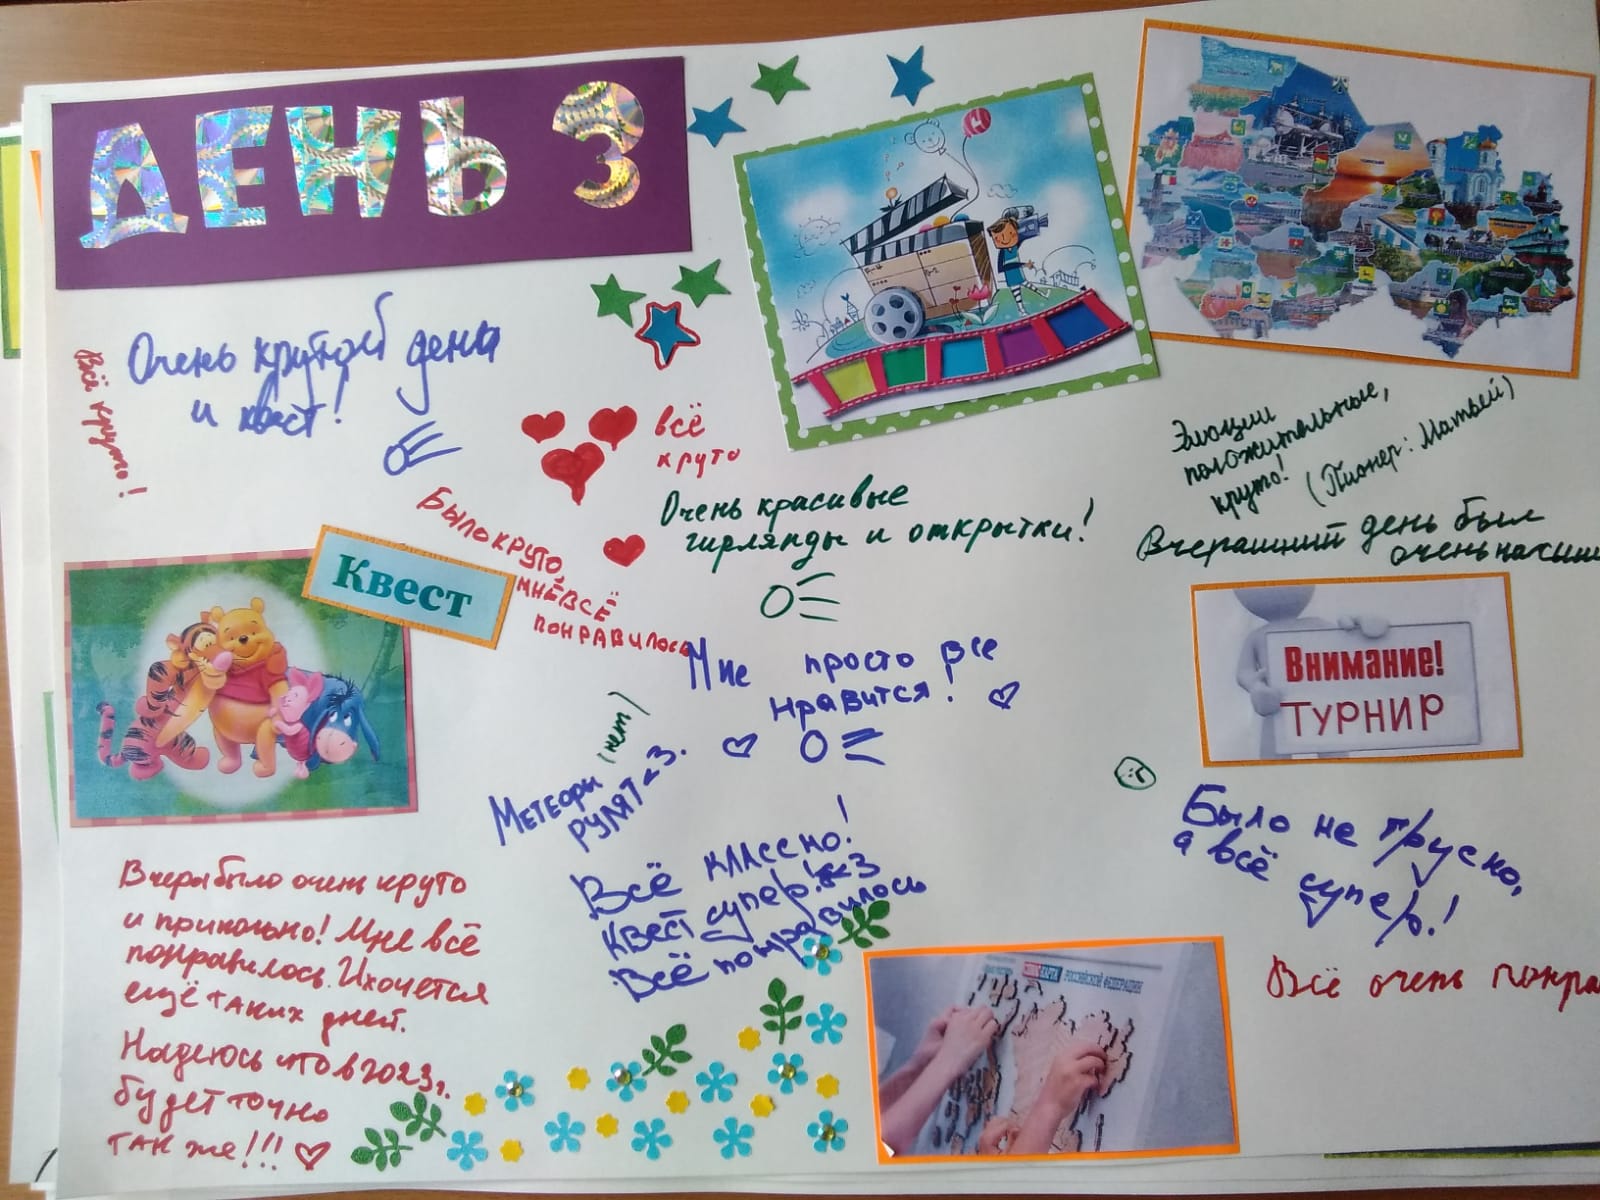 ДЕНЬ 3
Очень крутой день
и квест!
Всё круто!
всё
круто
Было круто,
мне всё
понравилось
Очень красивые
гирлянды и открытки!
Эмоции
положительные,
круто!
(Пионер: Матвей)
Вчерашний день был
очень насыщ
Квест
Внимание!
ТУРНИР
Мне просто все
нравится!
Метеоры (нет)
рулят <3.
Всё классно!
Квест супер! <3
Всё понравилось
Было не грусно,
а всё супер!
Всё очень понра
Вчеры было очен круто
и прикольно! Мне всё
понравилось. И хочется
ещё таких дней.
Надеюсь что в 2023 г.
будет точно
так же!!!
РОССИЙСКОЙ ФЕДЕРАЦИИ